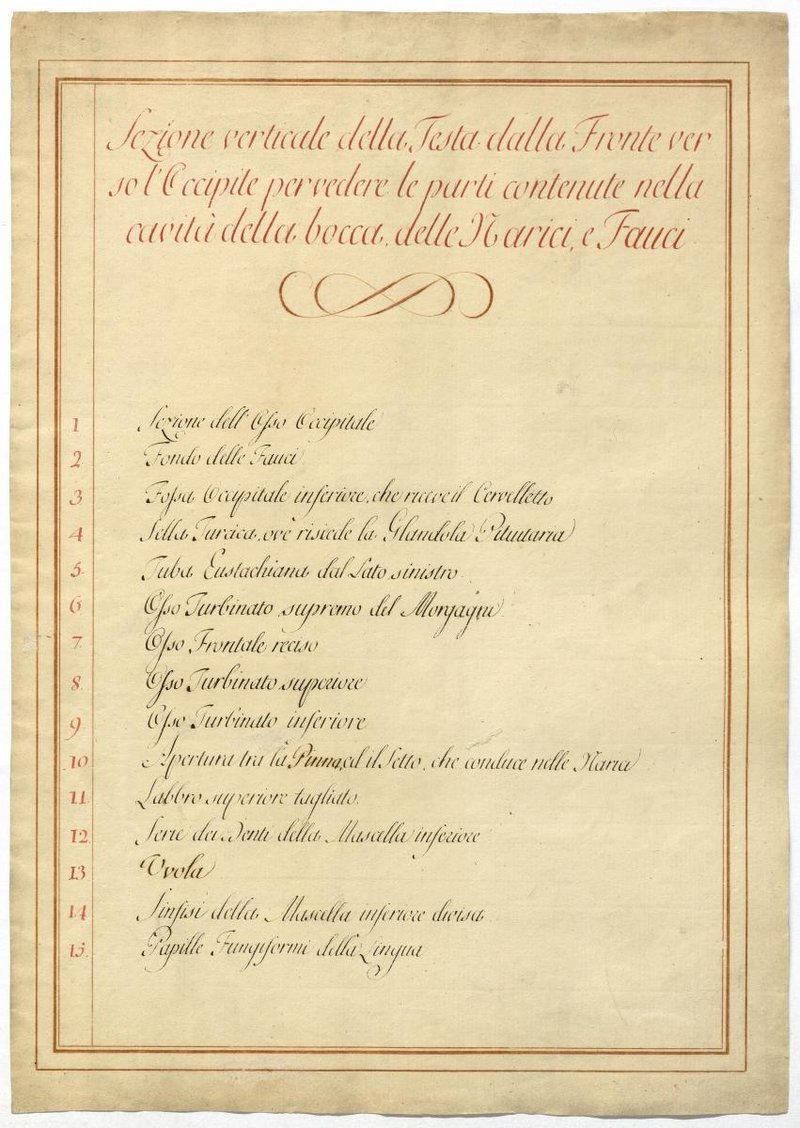 Sezione verticale della Testa dalla Fronte ver
so l'Occipite per vedere le parti contenute nella
cavità della bocca, delle Narici, e Fauci
1 Sezione dell'Osso Occipitale
2 Fondo delle Fauci
3 Fossa Occipitale inferiore, che riceve il Cervelletto
4 Sella Turcica, ov'è risiede la Glandola Pituitaria
5. Tuba Eustachiana dal Lato sinistro.
6 Osso Turbinato supremo del Morgagni
7. Osso Frontale reciso
8. Osso Turbinato superiore
9 Osso Turbinato inferiore
10 Apertura tra la Pinna, ed il Setto, che conduce nelle Narici
11 Labbro superiore tagliato.
12. Serie dei Denti della Mascella inferiore
13 Uvola
14 Sinfisi della Mascella inferiore divisa
15. Papille Fungiformi della Lingua